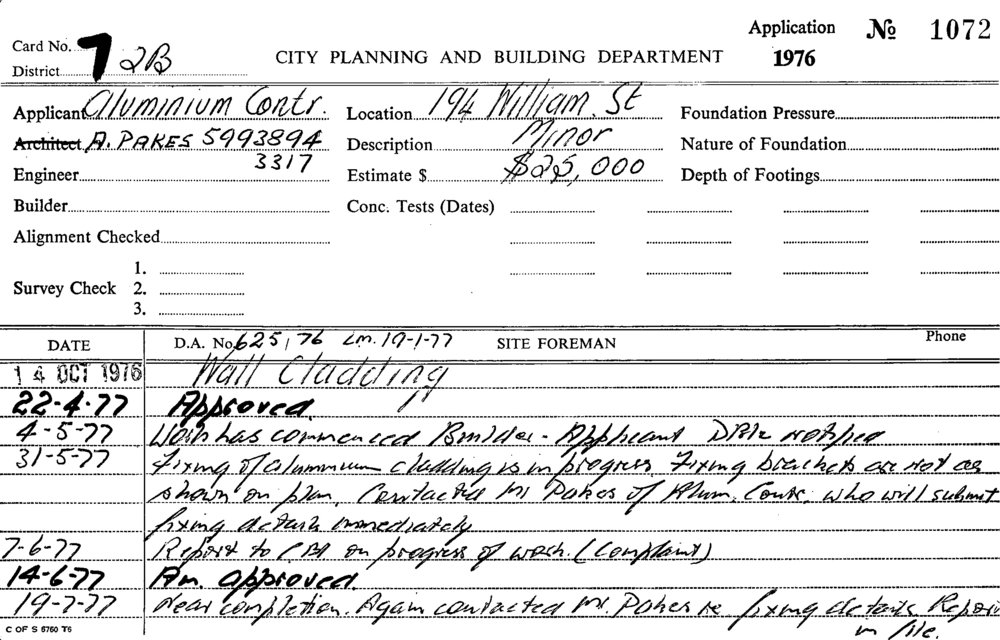 Application № 1072
Card No. 7 2B
CITY PLANNING AND BUILDING DEPARTMENT 1976
District
Applicant Aluminium Contr. Location 194 William St Foundation Pressure
Architect A. PAKES 5993894 Description Minor Nature of Foundation
3317
Engineer Estimate $ $25,000 Depth of Footings
Builder Conc. Tests (Dates)
Alignment Checked
1.
Survey Check 2.
3.
DATE D.A. No. 625/76 Lm. 19-1-77 SITE FOREMAN Phone
14 OCT 1976 Wall Cladding
22-4-77 Approved.
4-5-77 Work has commenced Builder - Applicant notified
31-5-77 Fixing of aluminium cladding is in progress Fixing brackets are not as
shown on plan. Contacted Mr Pakes of Alum. Contr. who will submit
fixing details immediately
7-6-77 Report to CBI on progress of work. (Complaint)
14-6-77 Am. approved.
19-7-77 Near completion. Again contacted Mr. Pakes re fixing details Report
on file.
C OF S 6760 T6